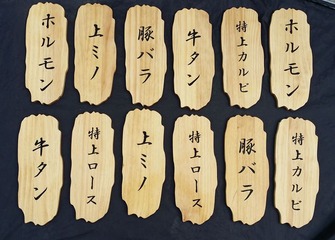 ホルモン
上ミノ
豚バラ
牛タン
特上カルビ
ホルモン
牛タン
特上ロース
上ミノ
特上ロース
豚バラ
特上カルビ